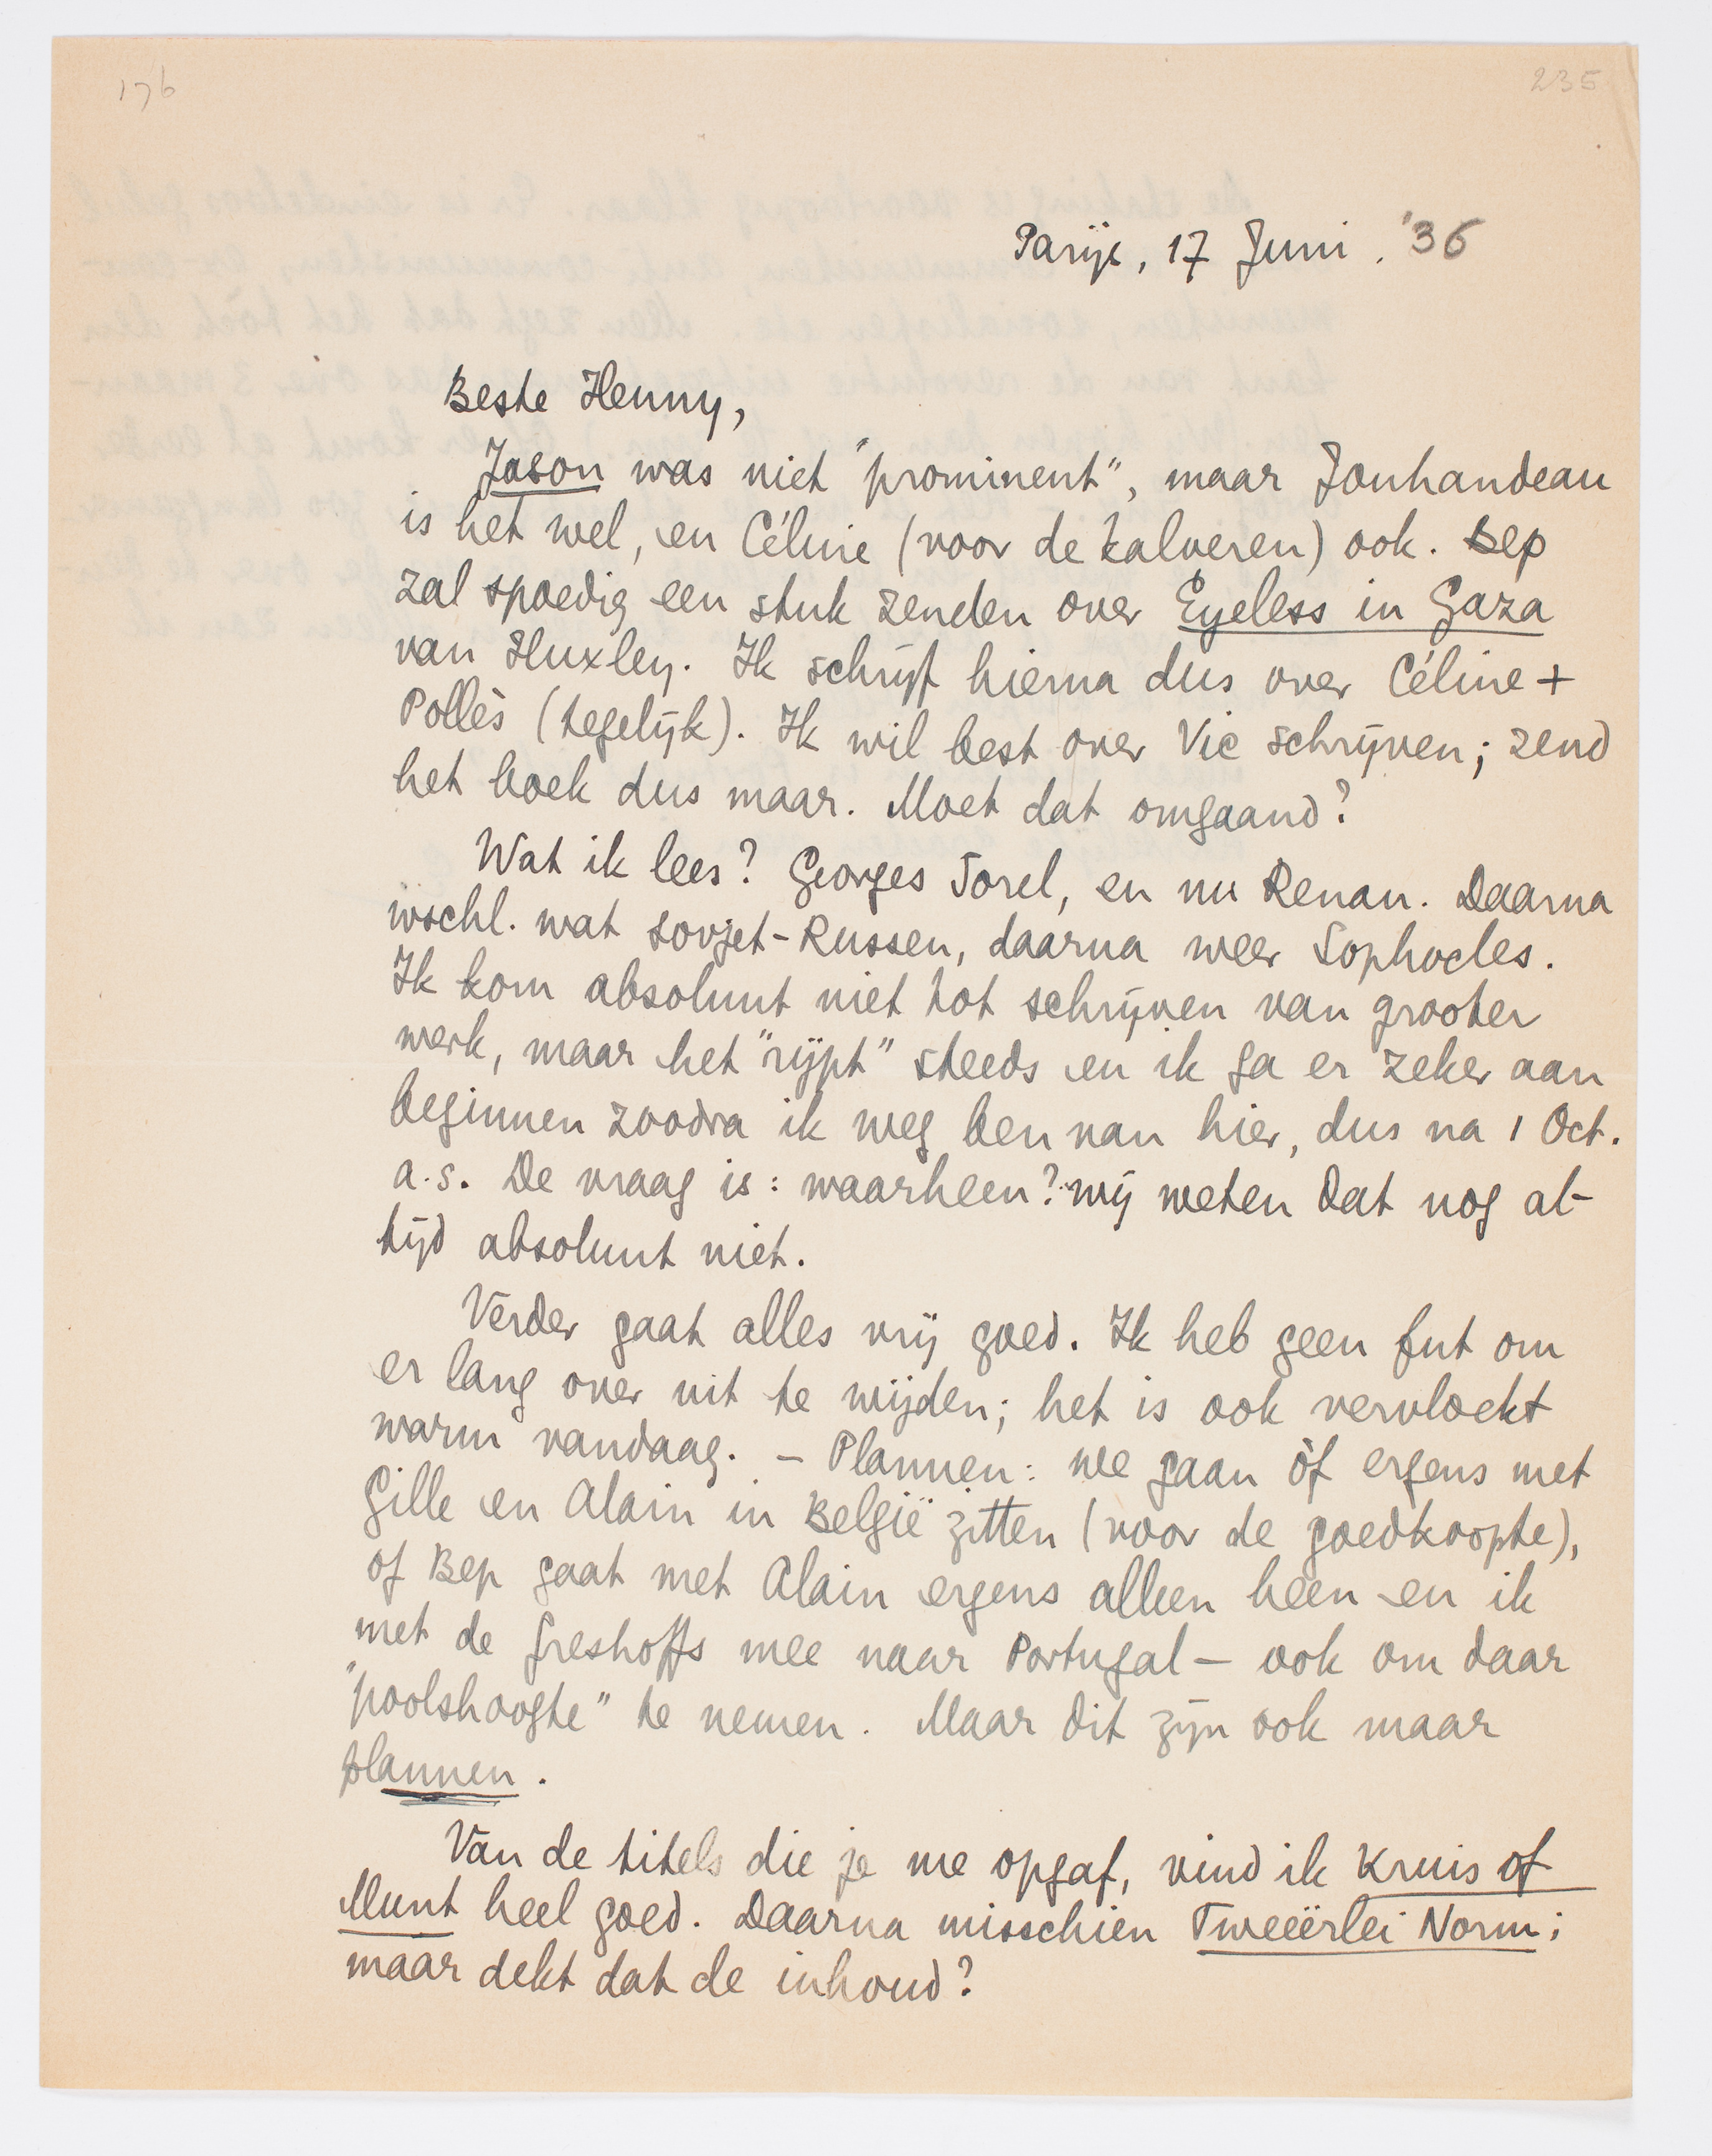 176
235
Parijs, 17 Juni. '36
Beste Henny,
Jason was niet "prominent", maar Jouhandeau
is het wel, en Céline (voor de kalveren) ook. Bep
zal spoedig een stuk zenden over Eyeless in Gaza
van Huxley. Ik schrijf hierna dus over Céline +
Pollès (tegelijk). Ik wil best over Vic schrijven; zend
het boek dus maar. Moet dat omgaand?
Wat ik lees? Georges Sorel, en nu Renan. Daarna
wschl. wat sovjet-Russen, daarna weer Sophocles.
Ik kom absoluut niet tot schrijven van grooter
werk, maar het "rijpt" steeds en ik ga er zeker aan
beginnen zoodra ik weg ben van hier, dus na 1 Oct.
a.s. De vraag is: waarheen? wij weten dat nog al-
tijd absoluut niet.
Verder gaat alles vrij goed. Ik heb geen fut om
er lang over uit te wijden; het is ook vervloekt
warm vandaag. – Plannen: we gaan òf ergens met
Gille en Alain in België zitten (voor de goedkoopte),
of Bep gaat met Alain ergens alleen heen en ik
met de Greshoffs mee naar Portugal – ook om daar
"poolshoogte" te nemen. Maar dit zijn ook maar
plannen.
Van de titels die je me opgaf, vind ik Kruis of
Munt heel goed. Daarna misschien Tweeërlei Norm;
maar dekt dat de inhoud?